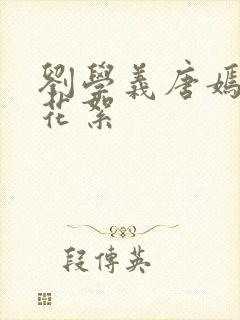 劉學義唐嫣
花絮
段傳英